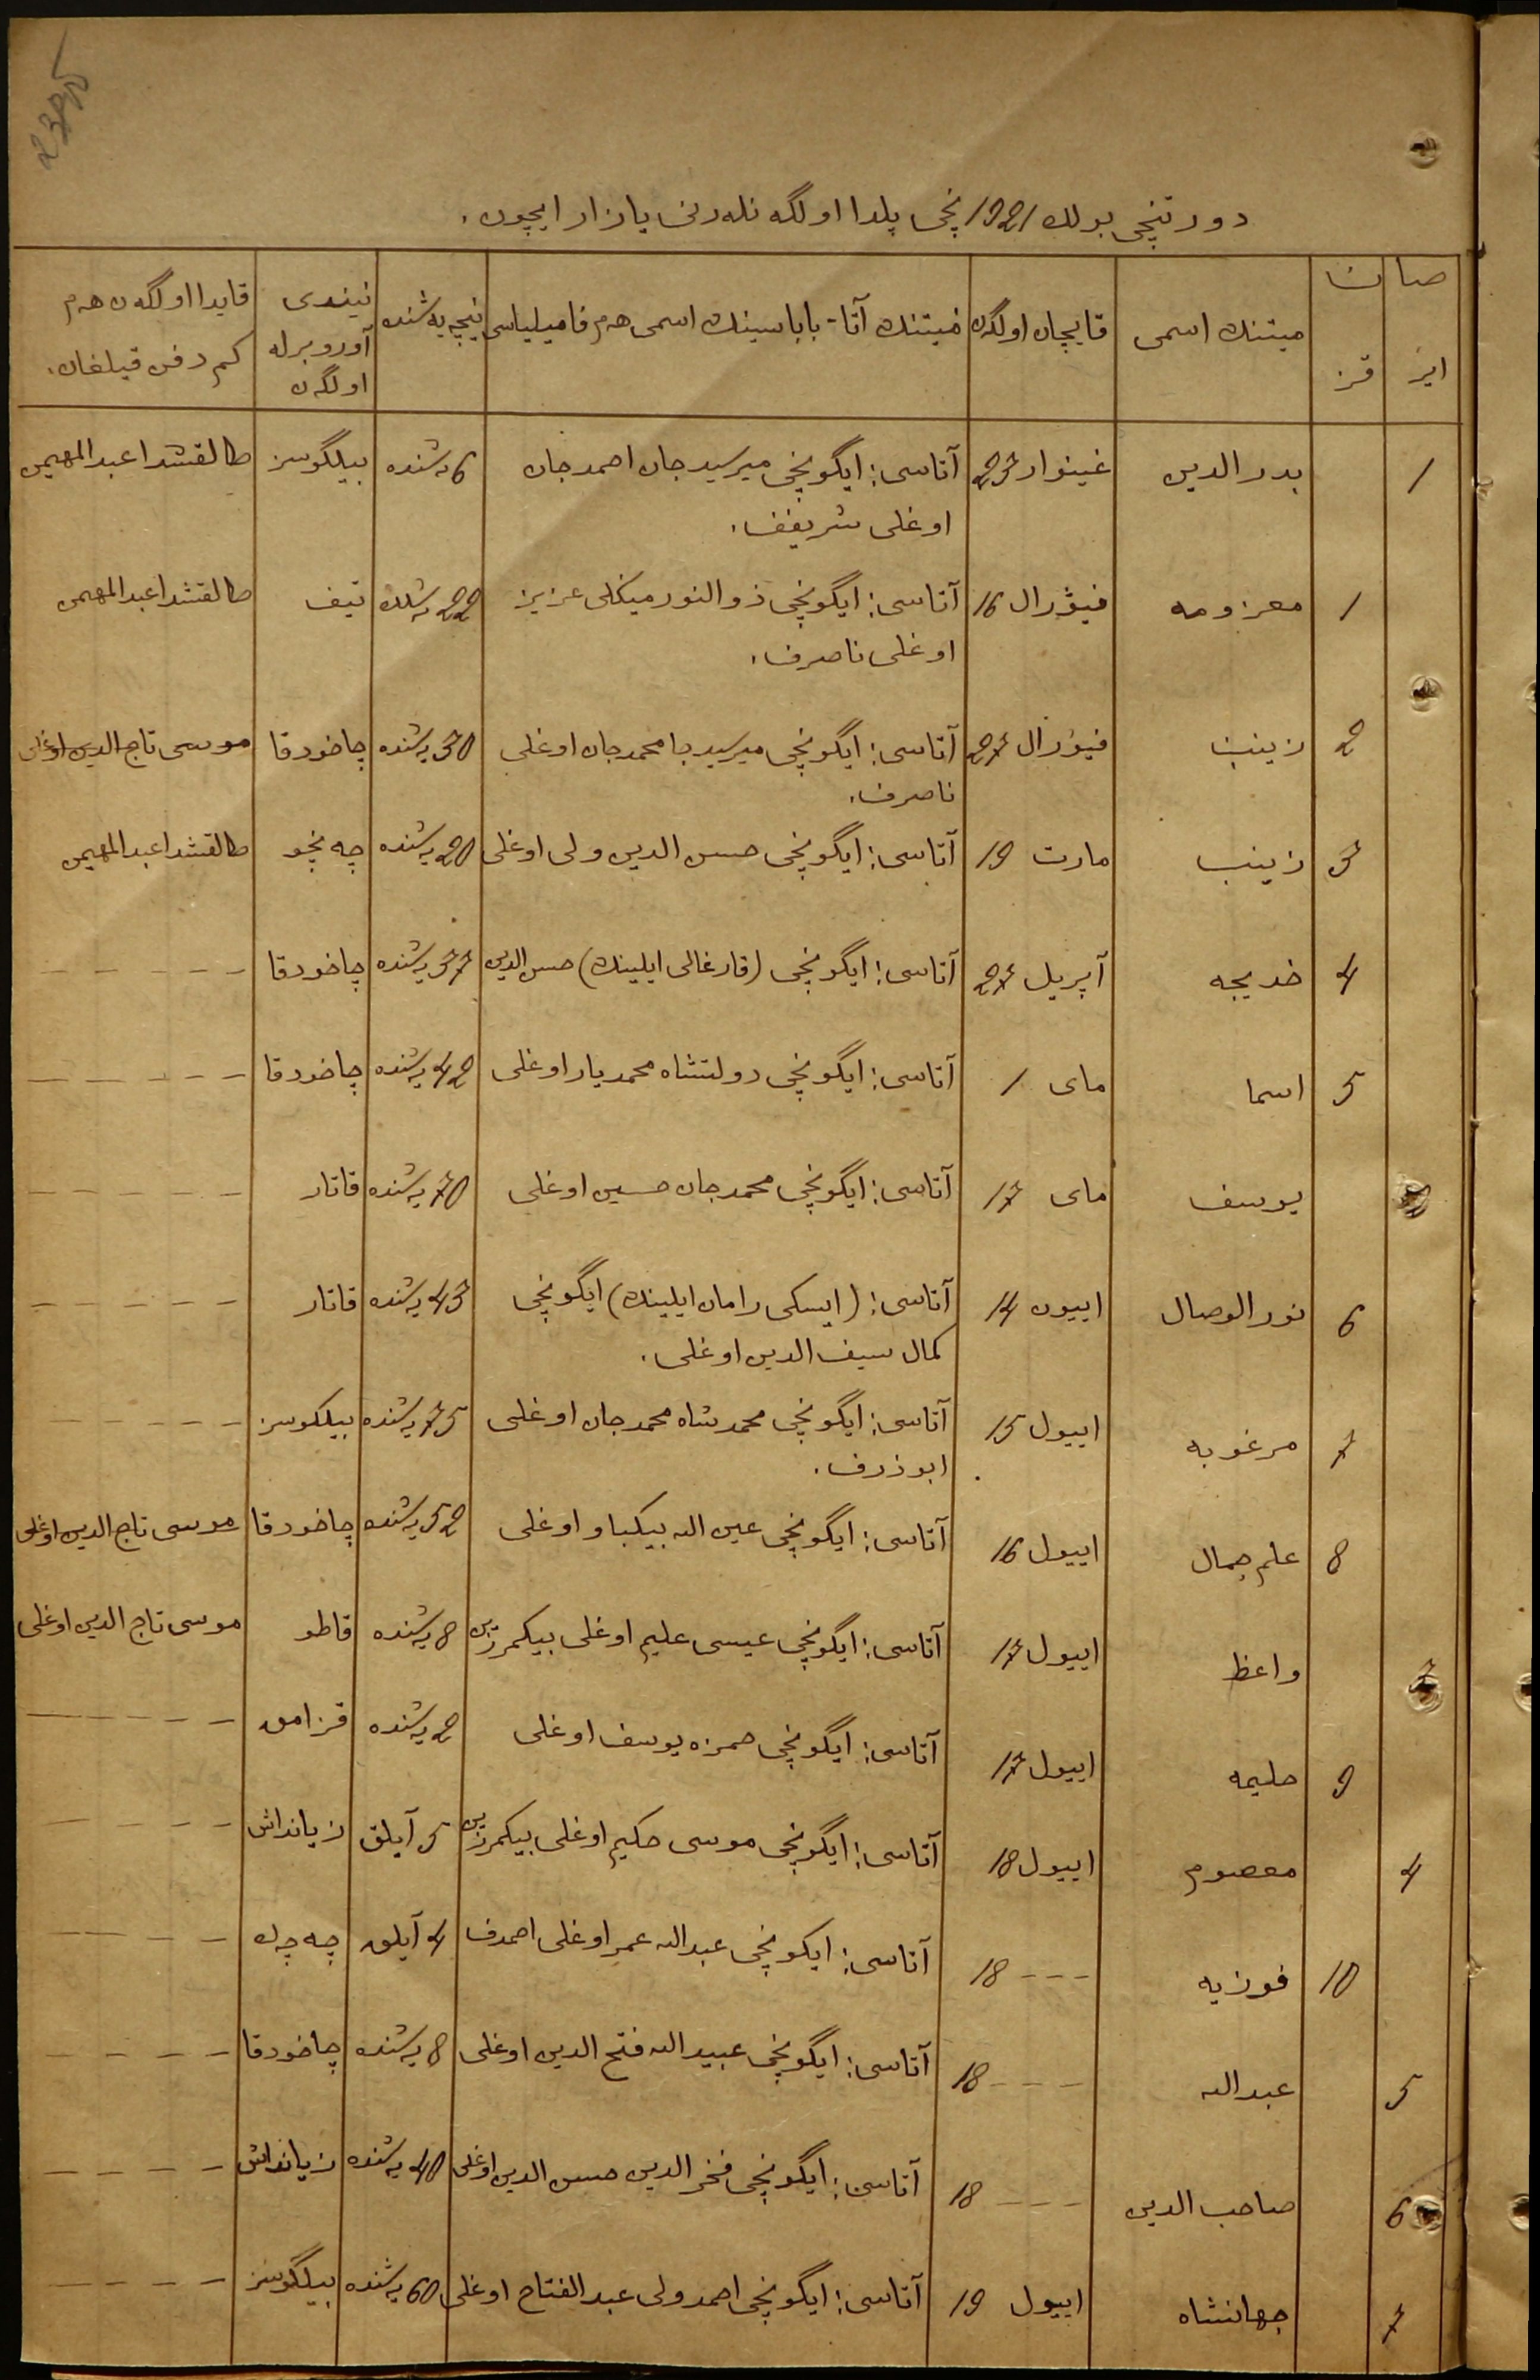 دورتنچی بولك 1921 نچی یلدا اولگەنلەرنی یازار ایچون.
صان
ایر
قز
میتنڭ اسمی
قایچان اولگەن
میتنڭ آتا-باباسینڭ اسمی هەم فامیلیاسی
نیچە یەشندە
نیندی
آورو برلە
اولگەن
قایدا اولگەن هەم
کم دفن قیلغان.
1 بدرالدین غینوار 23 آتاسی: ایگونچی میرسیدجان احمدجان 6 یەشندە بیلگوسز طالقشدا عبدالمهیمن
اوغلی شریفف.
1 معزومه فیۋرال 16 آتاسی: ایگونچی ذوالنور میڭلی عزیز 22 یەشندە تیف طالقشدا عبدالمهیمن
اوغلی ناصرف.
2 زینب فیۋرال 27 آتاسی: ایگونچی میرسیدجا محمدجان اوغلی 30 یەشندە چاخوتقا موسی تاج الدین اوغلی
ناصرف.
3 زینب مارت 19 آتاسی: ایگونچی حسن الدین ولی اوغلی 20 یەشندە چەنچو طالقشدا عبدالمهیمن
4 خدیجه آپریل 27 آتاسی: ایگونچی (قارغالی ایلینڭ) حسن الدین 37 یەشندە چاخوتقا - - - - -
5 اسما مای 1 آتاسی: ایگونچی دولتشاه محمدیار اوغلی 42 یەشندە چاخوتقا - - - - -
2 یوسف مای 17 آتاسی: ایگونچی محمدجان حسین اوغلی 70 یەشندە قاتار - - - - -
6 نورالوصال اییون 14 آتاسی: (ایسکی رامان ایلینڭ) ایگونچی 43 یەشندە قاتار - - - - -
کمال سیف الدین اوغلی.
7 مرغوبه اییول 15 آتاسی: ایگونچی محمدشاه محمدجان اوغلی 75 یەشندە بیلگوسز - - - - -
ابوذرف.
8 علم جمال اییول 16 آتاسی: ایگونچی عین الله بیکباو اوغلی 52 یەشندە چاخوتقا موسی تاج الدین اوغلی
3 واعظ اییول 17 آتاسی: ایگونچی عیسی علیم اوغلی 8 یەشندە قاطو موسی تاج الدین اوغلی
9 حلیمه اییول 17 آتاسی: ایگونچی حمزه یوسف اوغلی 2 یەشندە قزامق - - - - -
4 معصوم اییول 18 آتاسی: ایگونچی موسی حکیم اوغلی 5 آیلق زیانداش - - - -
10 فوزیه - - - 18 آتاسی: ایگونچی عبدالله عمر اوغلی احمدف 4 آیلق چەچەك - - - -
5 عبدالله - - - 18 آتاسی: ایگونچی عبیدالله فتح الدین اوغلی 8 یەشندە چاخوتقا - - - -
6 صاحب الدین - - - 18 آتاسی: ایگونچی فخرالدین حسن الدین اوغلی 40 یەشندە زیانداش - - - -
7 جهانشاه اییول 19 آتاسی: ایگونچی احمدولی عبدالفتاح اوغلی 60 یەشندە بیلگوسز - - - -